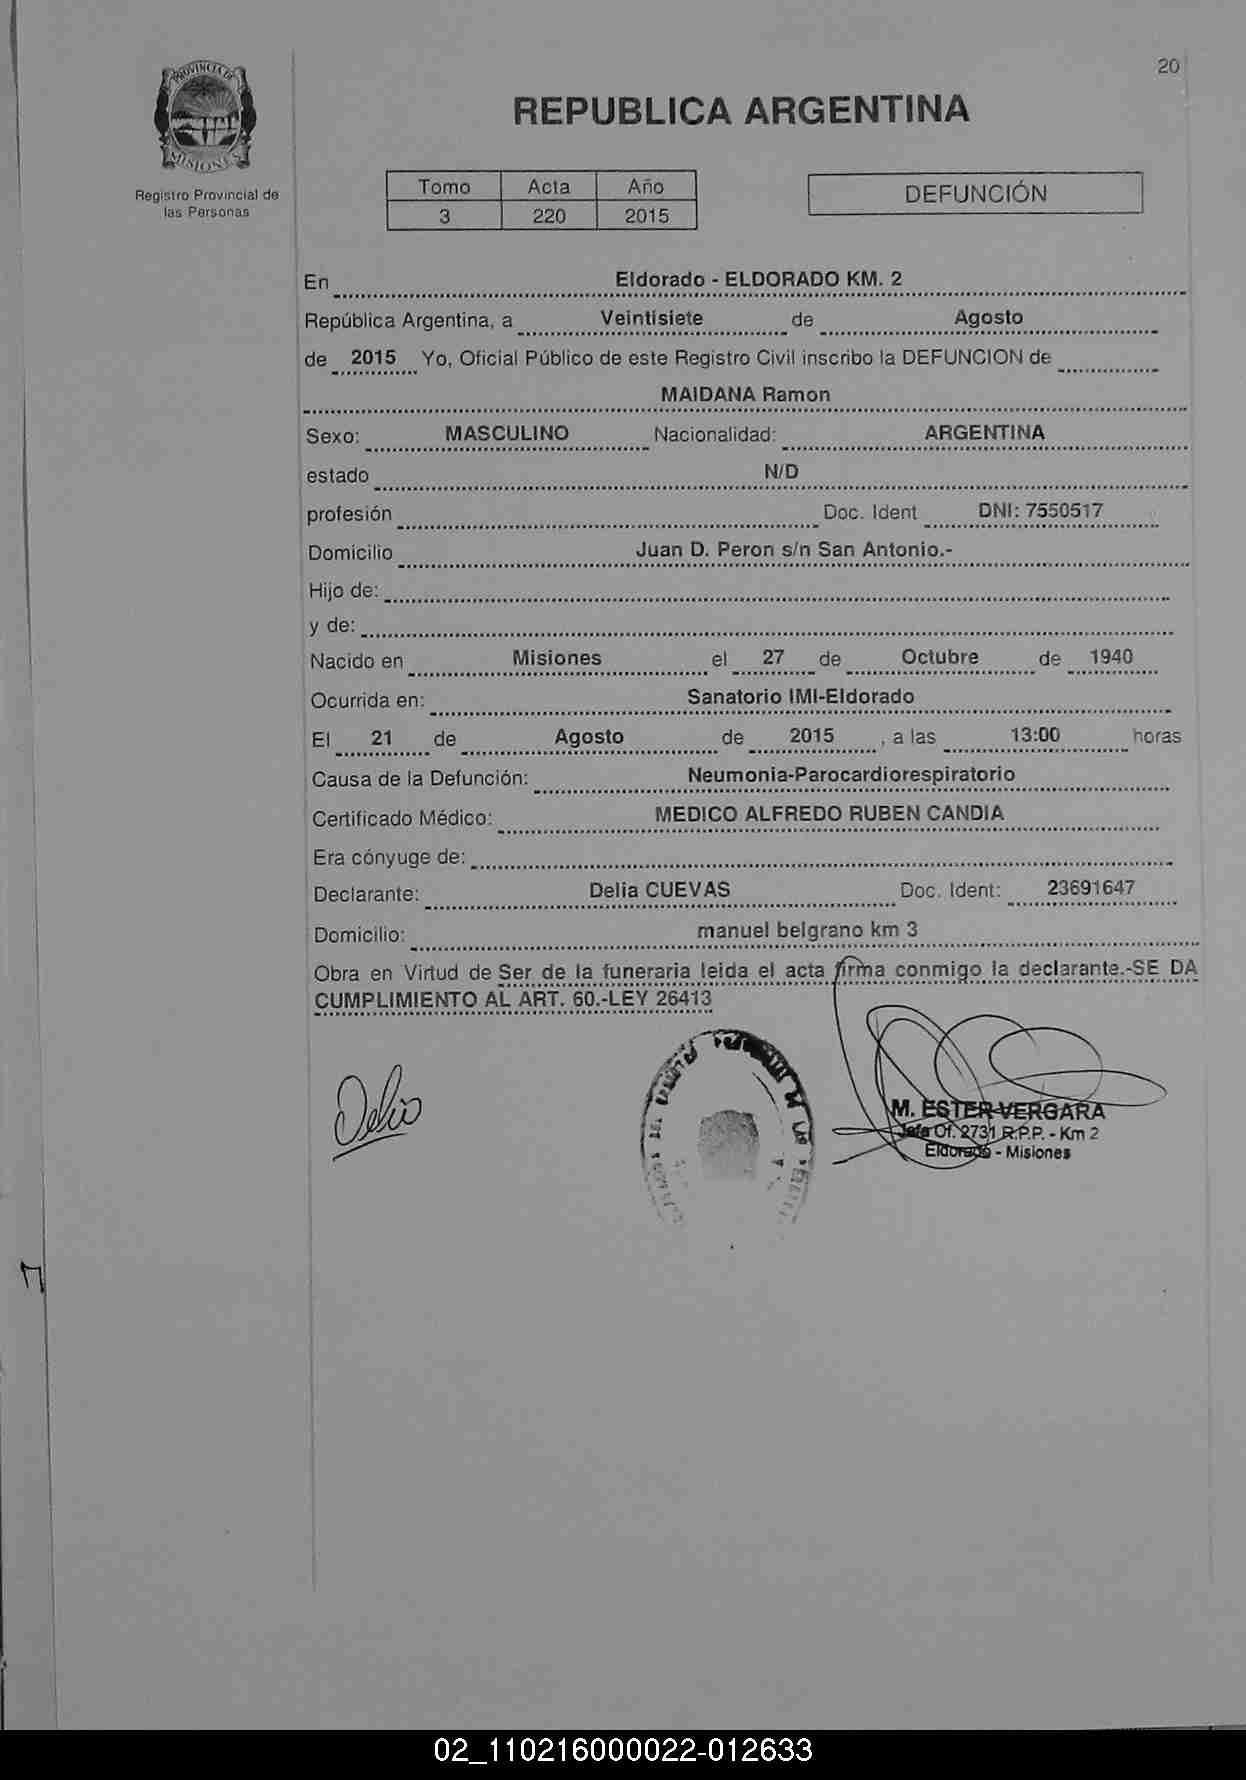 20
PROVINCIA DE
MISIONES
Registro Provincial de
las Personas
REPUBLICA ARGENTINA
Tomo Acta Año
3 220 2015
DEFUNCIÓN
En Eldorado - ELDORADO KM. 2
República Argentina, a Veintisiete de Agosto
de 2015 Yo, Oficial Público de este Registro Civil inscribo la DEFUNCION de
MAIDANA Ramon
Sexo: MASCULINO Nacionalidad: ARGENTINA
estado N/D
profesión Doc. Ident DNI: 7550517
Domicilio Juan D. Peron s/n San Antonio.-
Hijo de:
y de:
Nacido en Misiones el 27 de Octubre de 1940
Ocurrida en: Sanatorio IMI-Eldorado
El 21 de Agosto de 2015 , a las 13:00 horas
Causa de la Defunción: Neumonia-Parocardiorespiratorio
Certificado Médico: MEDICO ALFREDO RUBEN CANDIA
Era cónyuge de:
Declarante: Delia CUEVAS Doc. Ident: 23691647
Domicilio: manuel belgrano km 3
Obra en Virtud de Ser de la funeraria leida el acta firma conmigo la declarante.-SE DA
CUMPLIMIENTO AL ART. 60.-LEY 26413
Delia
M. ESTER VERGARA
Jefa Of. 2731 R.P.P. - Km 2
Eldorado - Misiones
02_110216000022-012633